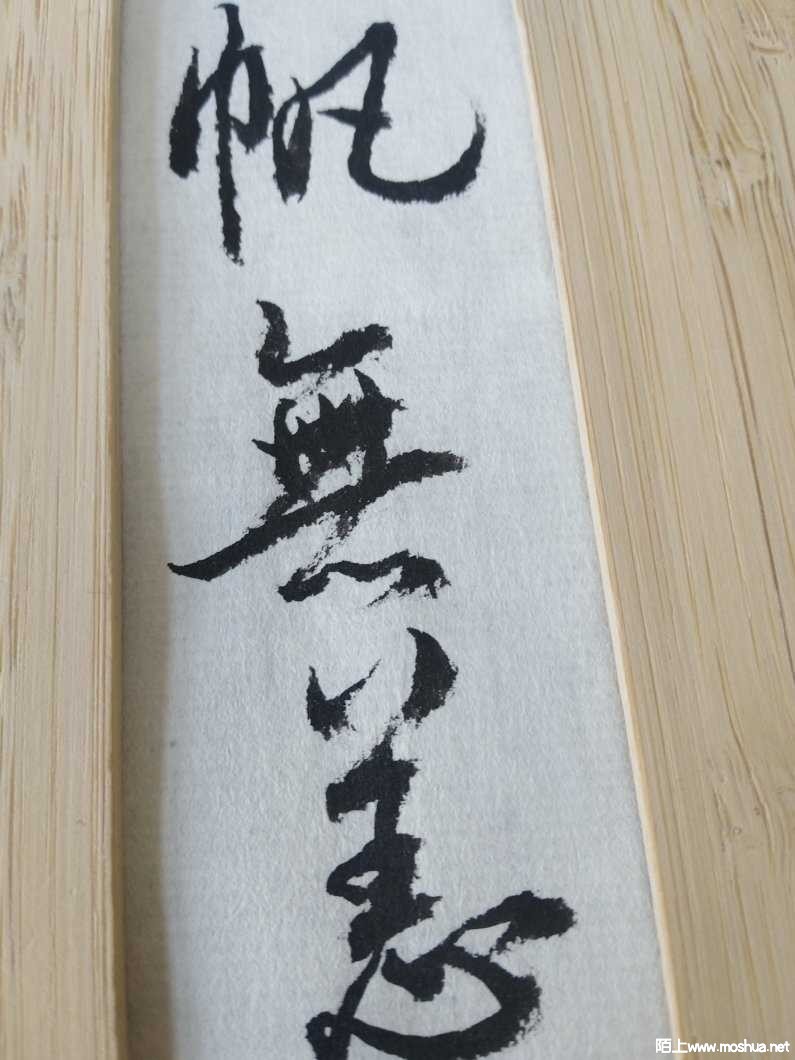 帆無恙
陌上www.moshua.net